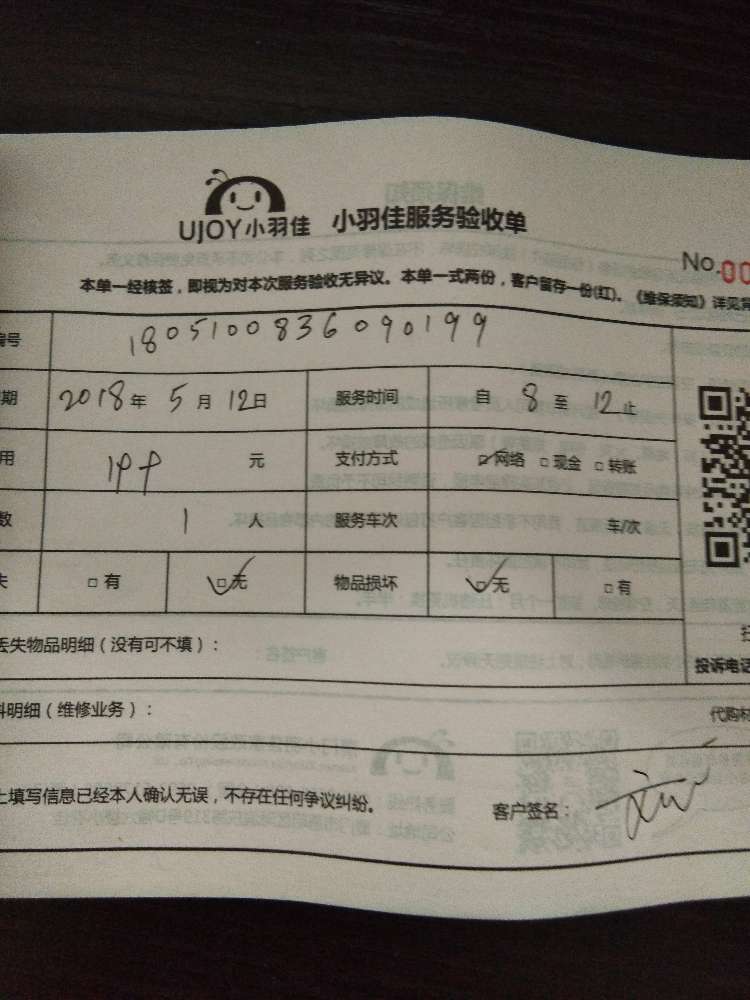 UJOY小羽佳 小羽佳服务验收单
No.00
本单一经核签，即视为对本次服务验收无异议。本单一式两份，客户留存一份(红)。《维保须知》详见背
编号 1805100836090199
期 2018年 5月 12日 服务时间 自 8 至 12 止
用 元 支付方式 ☑网络 □现金 □转账
数 1 人 服务车次 车/次
失 □有 ☑无 物品损坏 ☑无 □有
丢失物品明细（没有可不填）： 投诉电话
料明细（维修业务）： 代购材
上填写信息已经本人确认无误，不存在任何争议纠纷。 客户签名：